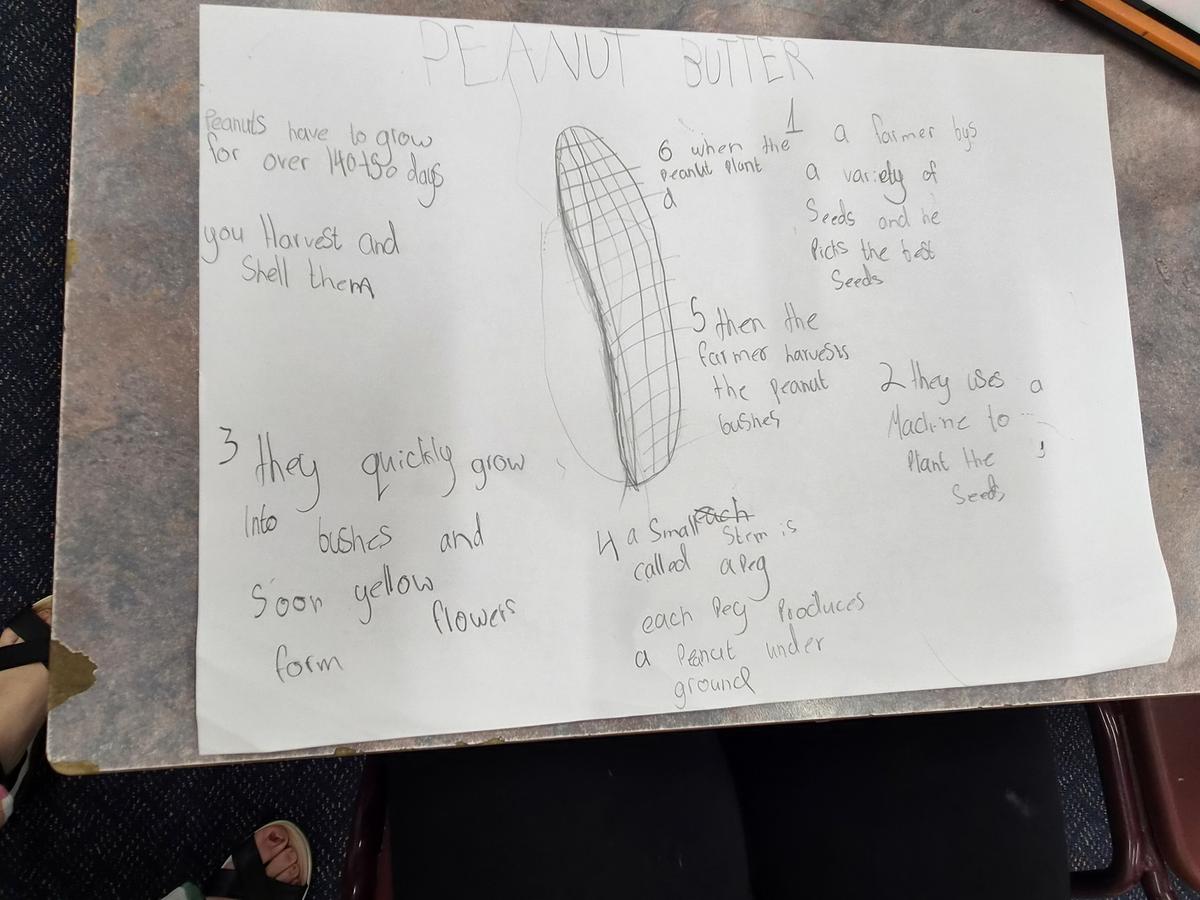 PEANUT BUTTER
Peanuts have to grow
for over 140-150 days
you Harvest and
Shell them
1 a farmer bys
a variety of
Seeds and he
Picks the best
Seeds
2 they uses a
Machine to
Plant the
Seeds
3 they quickly grow
Into bushes and
Soon yellow
flowers
form
4 a Small each
Stem is
called a Peg
each Peg Produces
a Peanut under
ground
5 then the
farmer harvests
the Peanut
bushes
6 when the
Peanut Plant
d